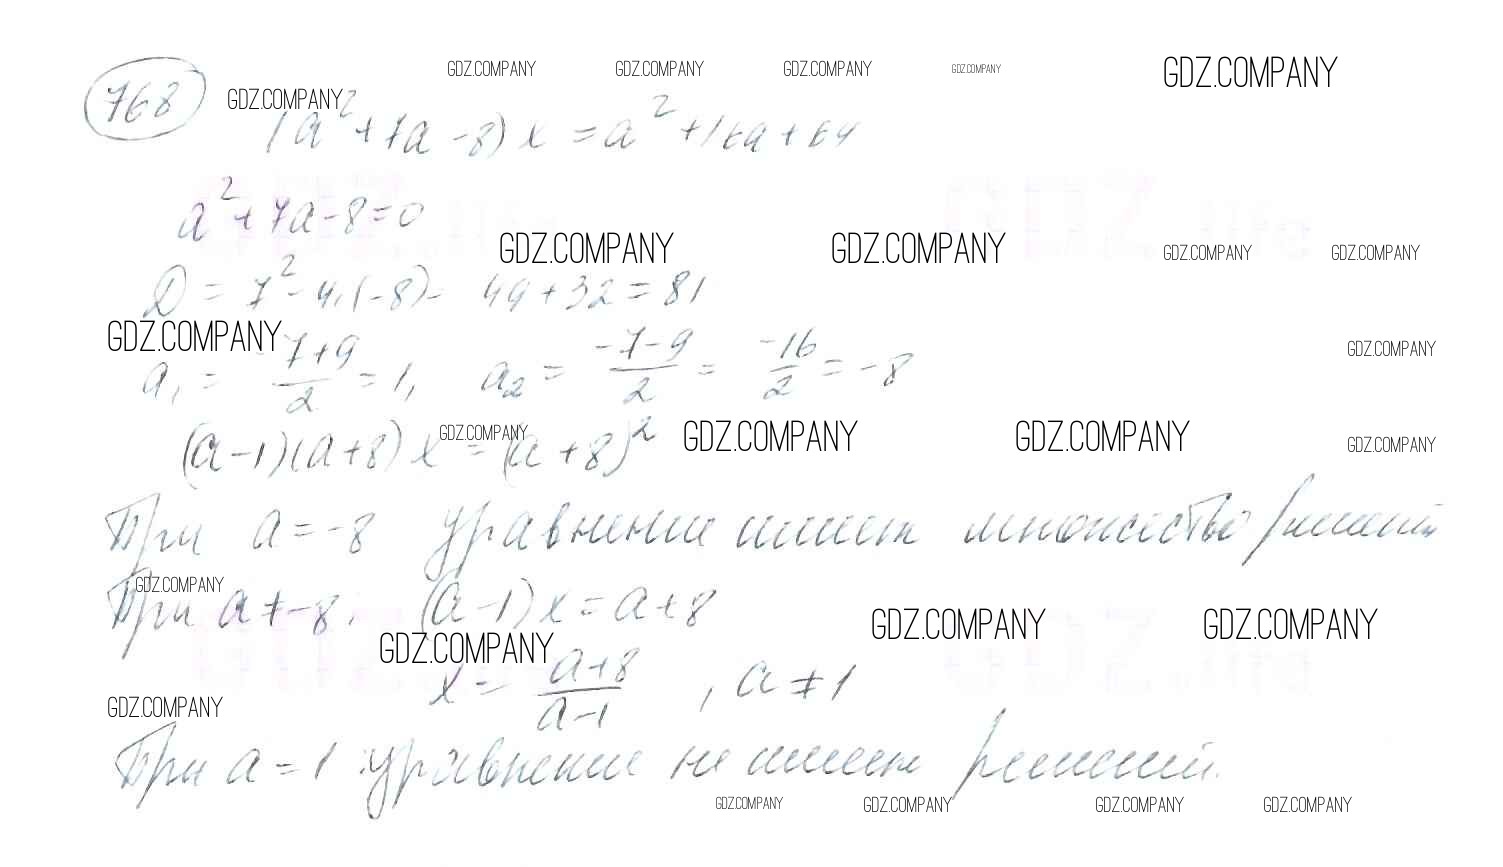 GDZ.COMPANY GDZ.COMPANY GDZ.COMPANY GDZ.COMPANY GDZ.COMPANY
768 GDZ.COMPANY
(a²+7a-8)x=a²+16a+64
a²+7a-8=0
GDZ.COMPANY GDZ.COMPANY GDZ.COMPANY GDZ.COMPANY
D=7²-4·(-8)= 49+32=81
GDZ.COMPANY GDZ.COMPANY
a₁= -7+9/2 =1, a₂= -7-9/2 = -16/2 =-8
GDZ.COMPANY GDZ.COMPANY GDZ.COMPANY GDZ.COMPANY
(a-1)(a+8)x=(a+8)²
При a=-8 уравнение имеет множество решений
GDZ.COMPANY
При a≠-8: (a-1)x=a+8
GDZ.COMPANY GDZ.COMPANY GDZ.COMPANY
x= a+8/a-1 , a≠1
GDZ.COMPANY
При a=1 уравнение не имеет решений.
GDZ.COMPANY GDZ.COMPANY GDZ.COMPANY GDZ.COMPANY